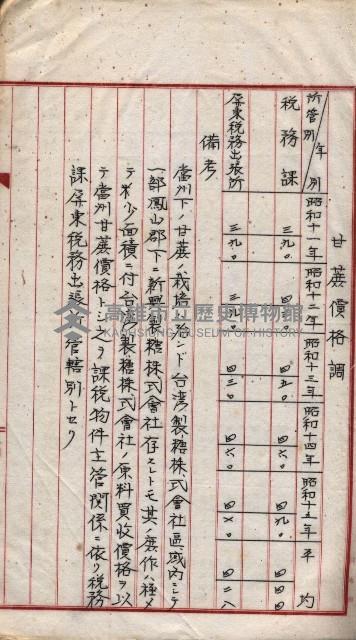 甘蔗價格調
所管別／年別 昭和十一年 昭和十二年 昭和十三年 昭和十四年 昭和十五年 平均
税務課 三九〇 四〇〇 四五〇 四六〇 四九〇 四四〇
屏東税務出張所 三九〇 三九〇 四三〇 四六〇 四六〇 四二八
備考
當州下ノ甘蔗ノ栽培殆ンド台湾製糖株式會社區域內ニシテ
一部鳳山郡下ニ新興製糖株式會社存スレトモ其ノ蔗作ハ極メ
テ少面積ニ付台湾製糖株式會社ノ原料買收價格ヲ以
テ當州甘蔗價格トシ之ヲ課税物件主管関係ニ依リ税務
課屏東税務出張所管轄別トセリ
高雄市立歷史博物館
KAOHSIUNG MUSEUM OF HISTORY